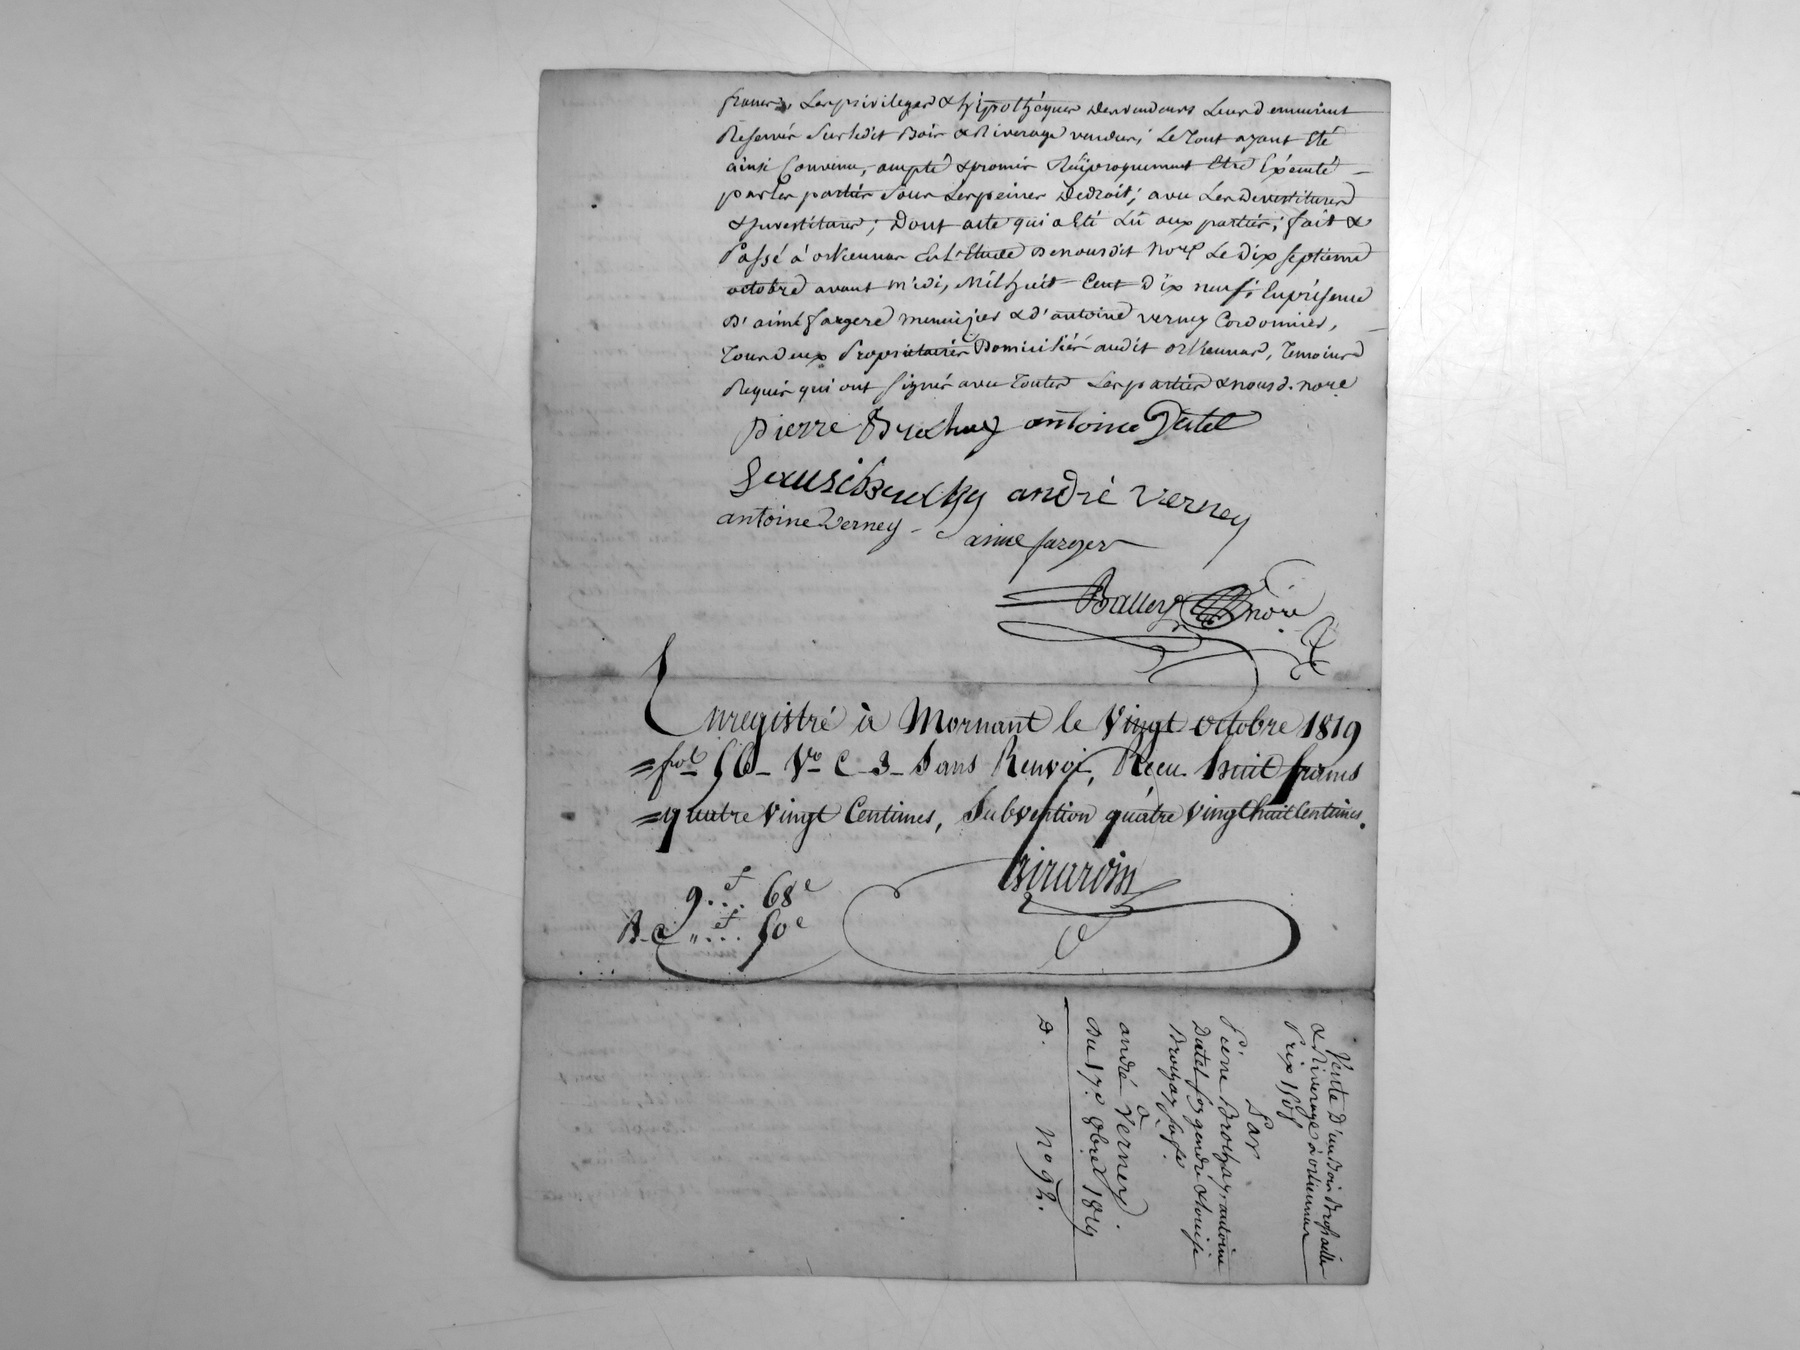 francs, Les privileges & hipothéques des vendeurs Leur demeurent
Reservés Sur ledit Bois & Riverage vendus; Le Tout ayant Eté
ainsi Convenu, accepté & promis Réciproquement Etre Exécuté
par Les parties Sous Les peines De droit; avec Les Devestitures
& Investitures; Dont acte qui a Eté Lû aux parties; fait &
Passé à orliennas En L'Etude De nousdit Nore Le Dix septieme
octobre avant midi, Mil huit Cent Dix neuf; En présence
D'aimé fargere menuisier & d'antoine verney Cordonnier,
Tous deux Propriétaires Domiciliés audit orliennas, Temoins
Requis qui ont signés avec Toutes Les parties & nous d. nore
pierre Brochay antoine Datel
andré verney
antoine Verney
aime farger
Balley nore
Enregistré à Mornant le Vingt octobre 1819
fol 56 Vo C 3 Sans Renvoi, Reçu huit francs
quatre Vingt Centimes, Subvention quatre Vingt huit Centimes.
Girardin
9f .... 68c
" f .... 50c
Vente D'un Bois Brossailles
& Riverage à orliennas
Prix
Par
Pierre Brochay, antoine
Datel son gendre & Louise
Brochay sa fe.
à
andré Verney.
Du 17e. 8bre 1819
D. No 92.